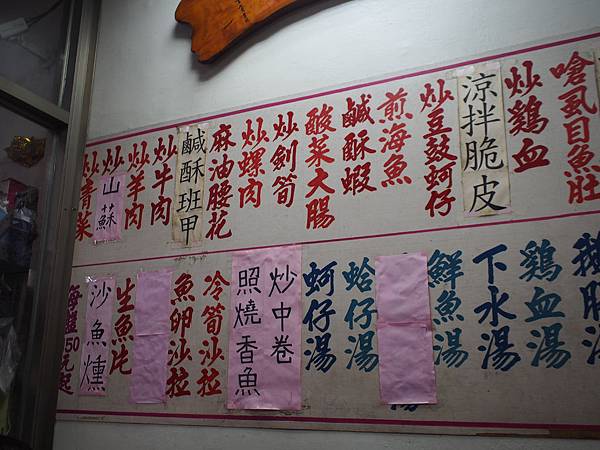 嗆虱目魚肚
炒鷄血
涼拌脆皮
炒豆鼓蚵仔
煎海魚
鹹酥蝦
酸菜大腸
炒劍筍
炒螺肉
麻油腰花
鹹酥班甲
炒牛肉
炒羊肉
炒山蘇
炒青菜
鷄血湯
下水湯
鮮魚湯
蛤仔湯
蚵仔湯
炒中卷
照燒香魚
冷筍沙拉
魚卵沙拉
生魚片
沙魚燻
每種150元起